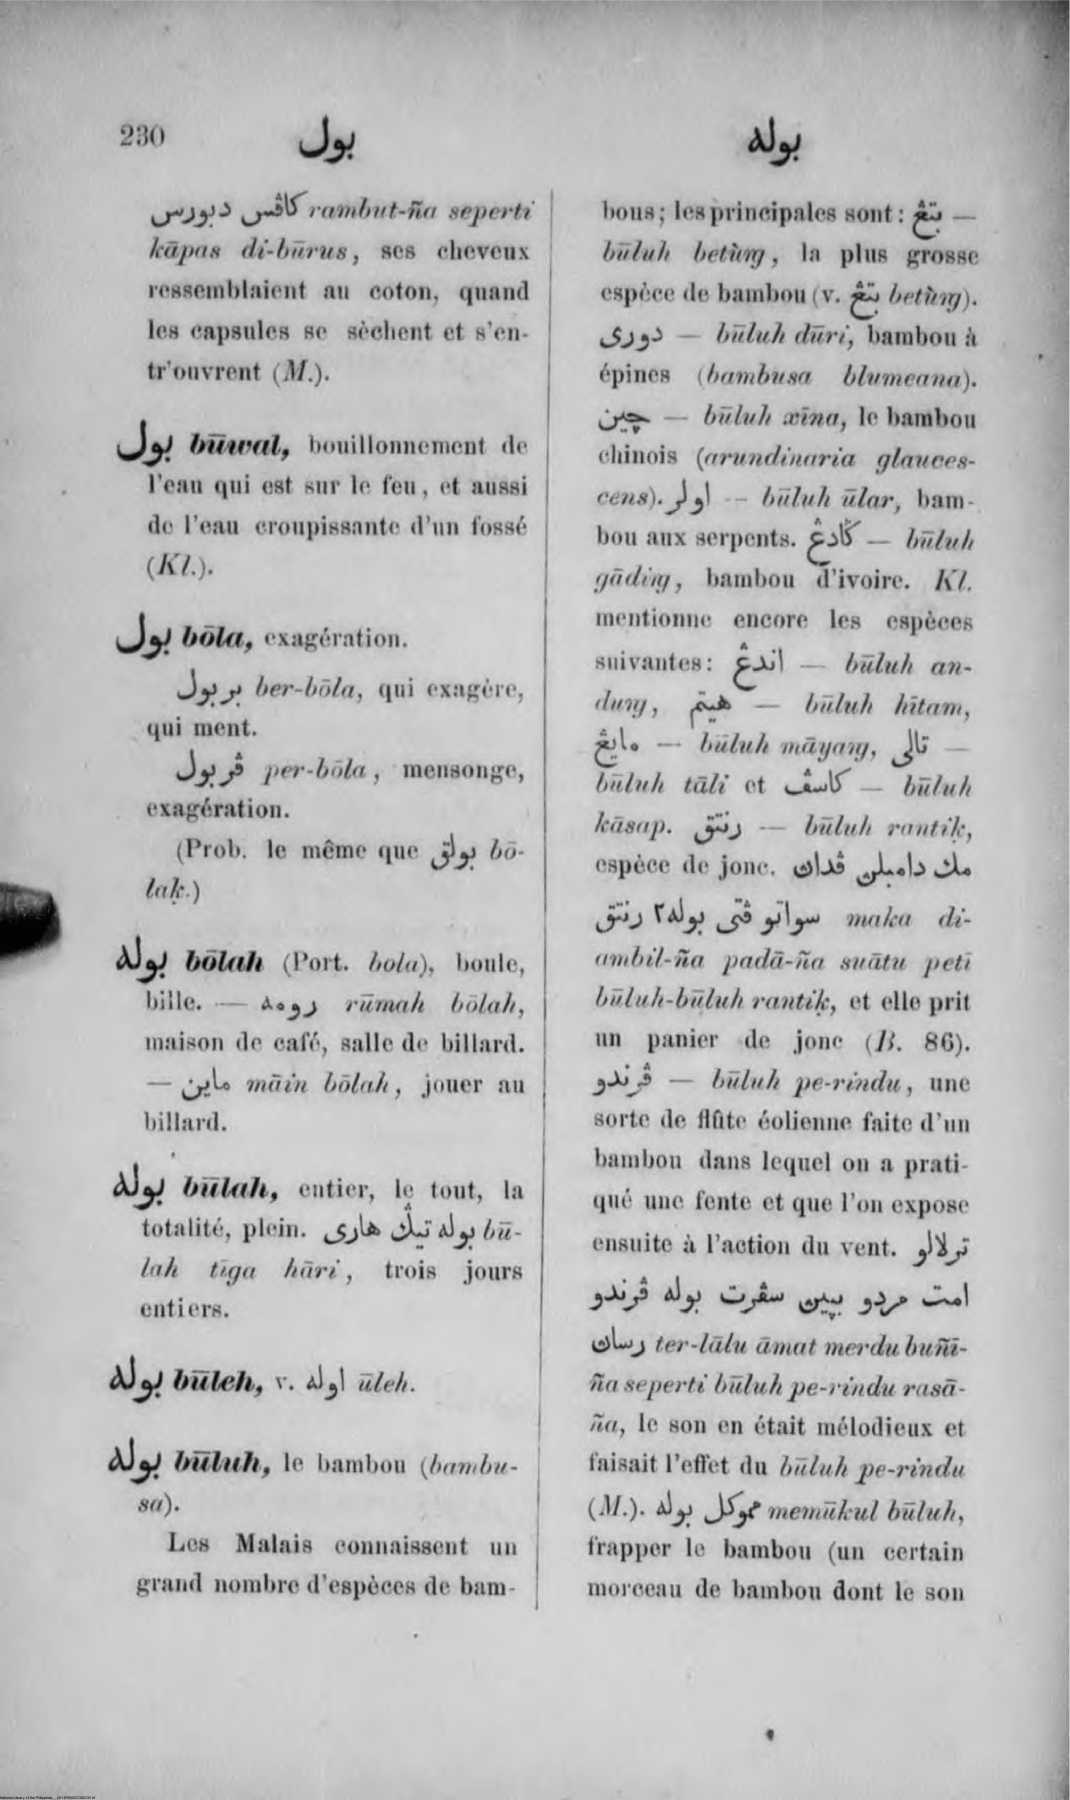 230 بول بوله
كاڤس دبورس rambut-ña seperti
kāpas di-būrus, ses cheveux
ressemblaient au coton, quand
les capsules se sèchent et s'en-
tr'ouvrent (M.).
بول būwal, bouillonnement de
l'eau qui est sur le feu, et aussi
de l'eau croupissante d'un fossé
(Kl.).
بول bōla, exagération.
بربول ber-bōla, qui exagère,
qui ment.
ڤربول per-bōla, mensonge,
exagération.
(Prob. le même que بولق bō-
laḳ.)
بوله bōlah (Port. bola), boule,
bille. — رومه rūmah bōlah,
maison de café, salle de billard.
— ماين māin bōlah, jouer au
billard.
بوله būlah, entier, le tout, la
totalité, plein. بوله تيݢ هارى bū-
lah tīga hāri, trois jours
entiers.
بوله būleh, v. اوله ūleh.
بوله būluh, le bambou (bambu-
sa).
Les Malais connaissent un
grand nombre d'espèces de bam-
bous; les principales sont: بتڠ —
būluh betùng, la plus grosse
espèce de bambou (v. بتڠ betùng).
دورى — būluh dūri, bambou à
épines (bambusa blumeana).
چين — būluh xīna, le bambou
chinois (arundinaria glauces-
cens). اولر — būluh ūlar, bam-
bou aux serpents. ݢادڠ — būluh
gāding, bambou d'ivoire. Kl.
mentionne encore les espèces
suivantes: اندڠ — būluh an-
dung, هيتم — būluh hītam,
مايڠ — būluh māyang, تالى —
būluh tāli et كاسڤ — būluh
kāsap. رنتق — būluh rantiḳ,
espèce de jonc. مك دامبلن ڤدان
سواتو ڤتى بوله٢ رنتق maka di-
ambil-ña padā-ña suātu petī
būluh-būluh rantiḳ, et elle prit
un panier de jonc (B. 86).
ڤرندو — būluh pe-rindu, une
sorte de flûte éolienne faite d'un
bambou dans lequel on a prati-
qué une fente et que l'on expose
ensuite à l'action du vent. ترلالو
امت مردو بپين سڤرت بوله ڤرندو
رسان ter-lālu āmat merdu buñī-
ña seperti būluh pe-rindu rasā-
ña, le son en était mélodieux et
faisait l'effet du būluh pe-rindu
(M.). مموكل بوله memūkul būluh,
frapper le bambou (un certain
morceau de bambou dont le son